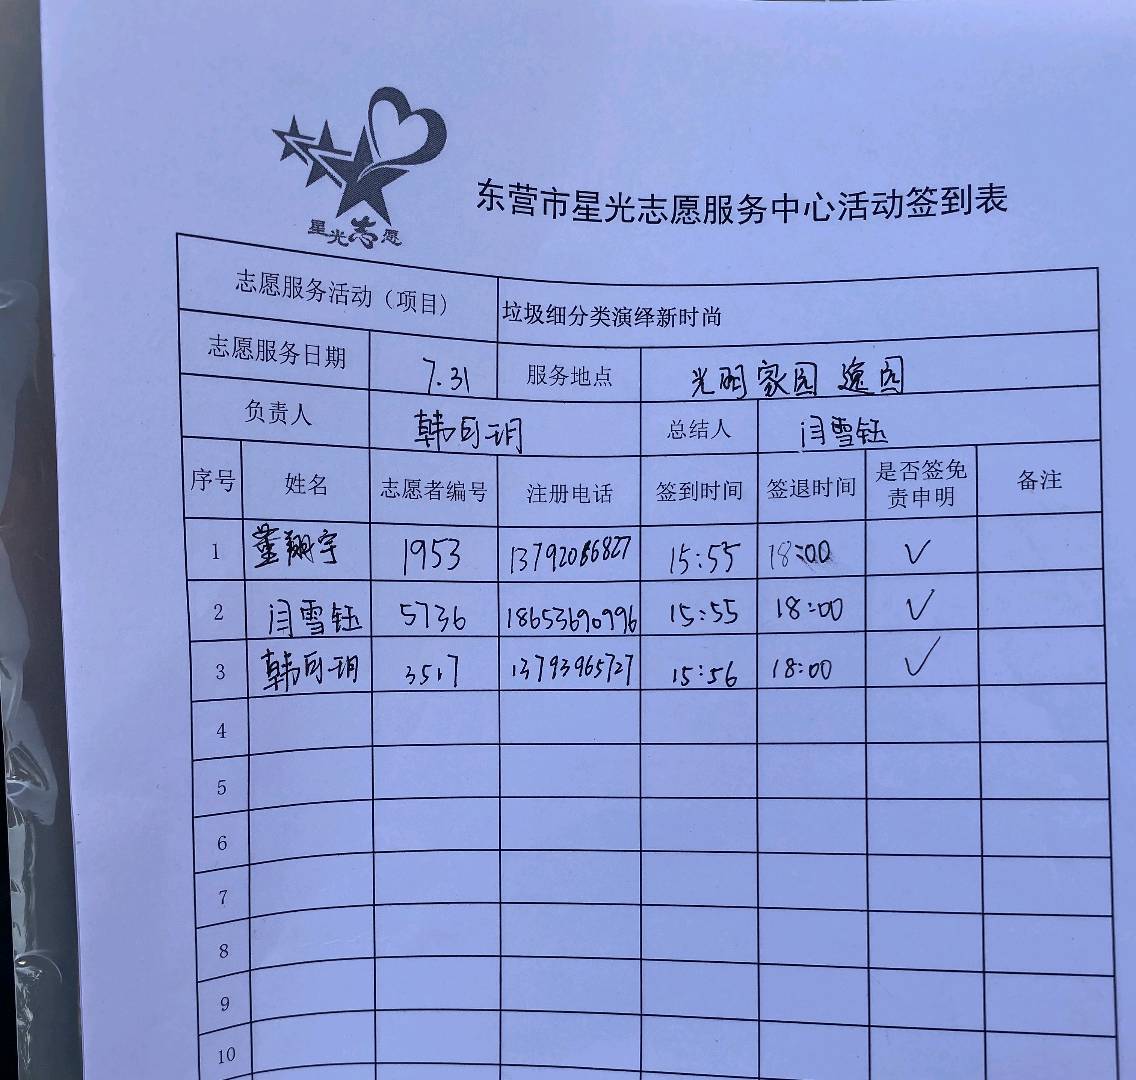 星光志愿
东营市星光志愿服务中心活动签到表
志愿服务活动（项目） 垃圾细分类演绎新时尚
志愿服务日期 7.31 服务地点 光明家园 逸园
负责人 韩月玥 总结人 闫雪钰
序号 姓名 志愿者编号 注册电话 签到时间 签退时间 是否签免责申明 备注
1 董翔宇 1953 13792086827 15:55 18:00 ✓
2 闫雪钰 5736 18653690996 15:55 18:00 ✓
3 韩月玥 3517 13793965727 15:56 18:00 ✓
4
5
6
7
8
9
10